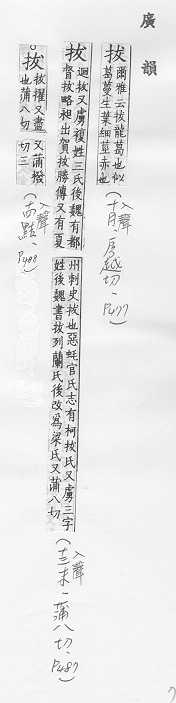 廣韻
拔 爾雅云拔蘢葛也似
葛蔓生葉細莖赤也
(入聲十月、房越切、P477)
拔 迴拔又虜複姓三氏後魏有都
督拔略昶出賀拔勝傳又有夏
州刺史拔也惡蚝官氏志有柯拔氏又虜三字
姓後魏書拔列蘭氏後改為梁氏又蒲八切
(入聲十三末、蒲八切、P487)
拔 拔擢又盡 又蒲撥
也蒲八切 切三
(入聲十四黠、P488)
7